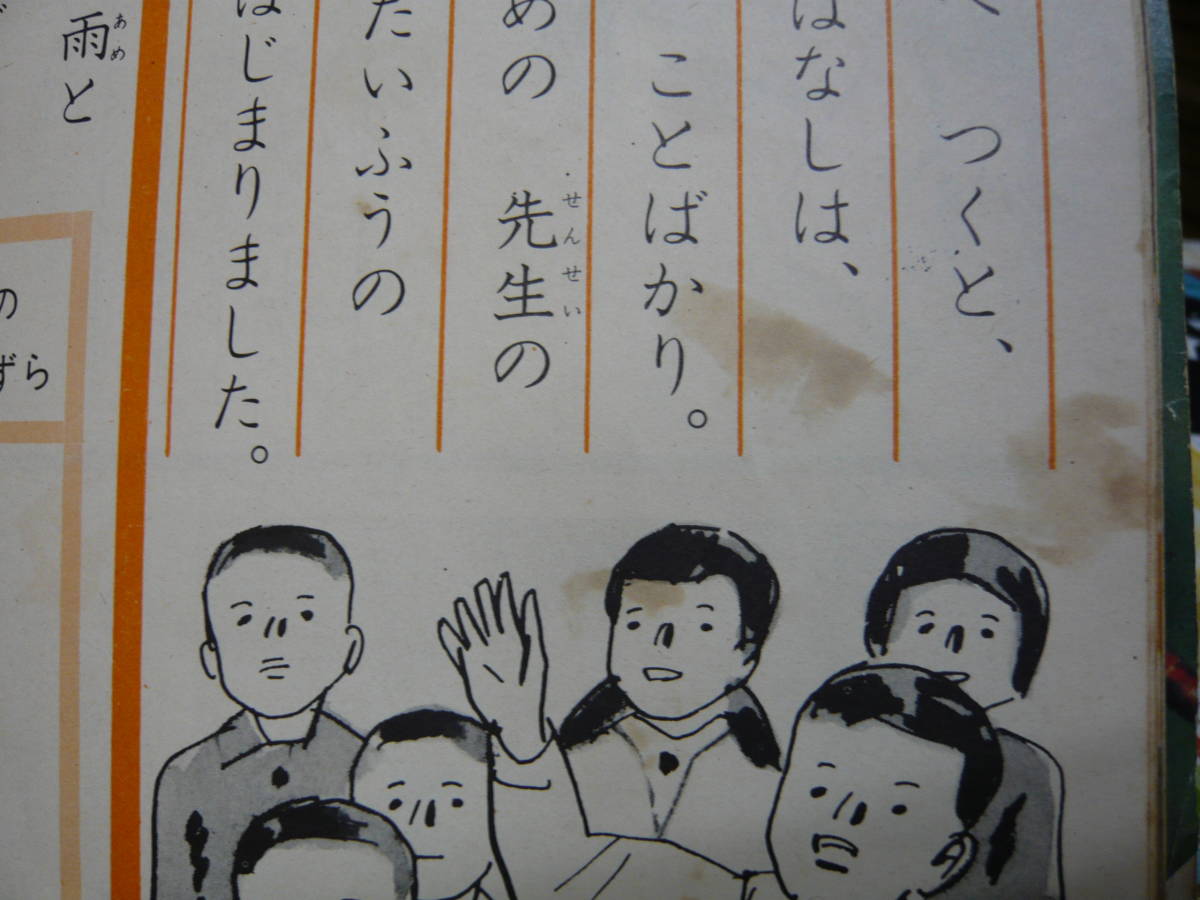 つくと、
はなしは、
ことばかり。
めの 先生の
せんせい
たいふうの
はじまりました。
雨と
あめ
の
ずら